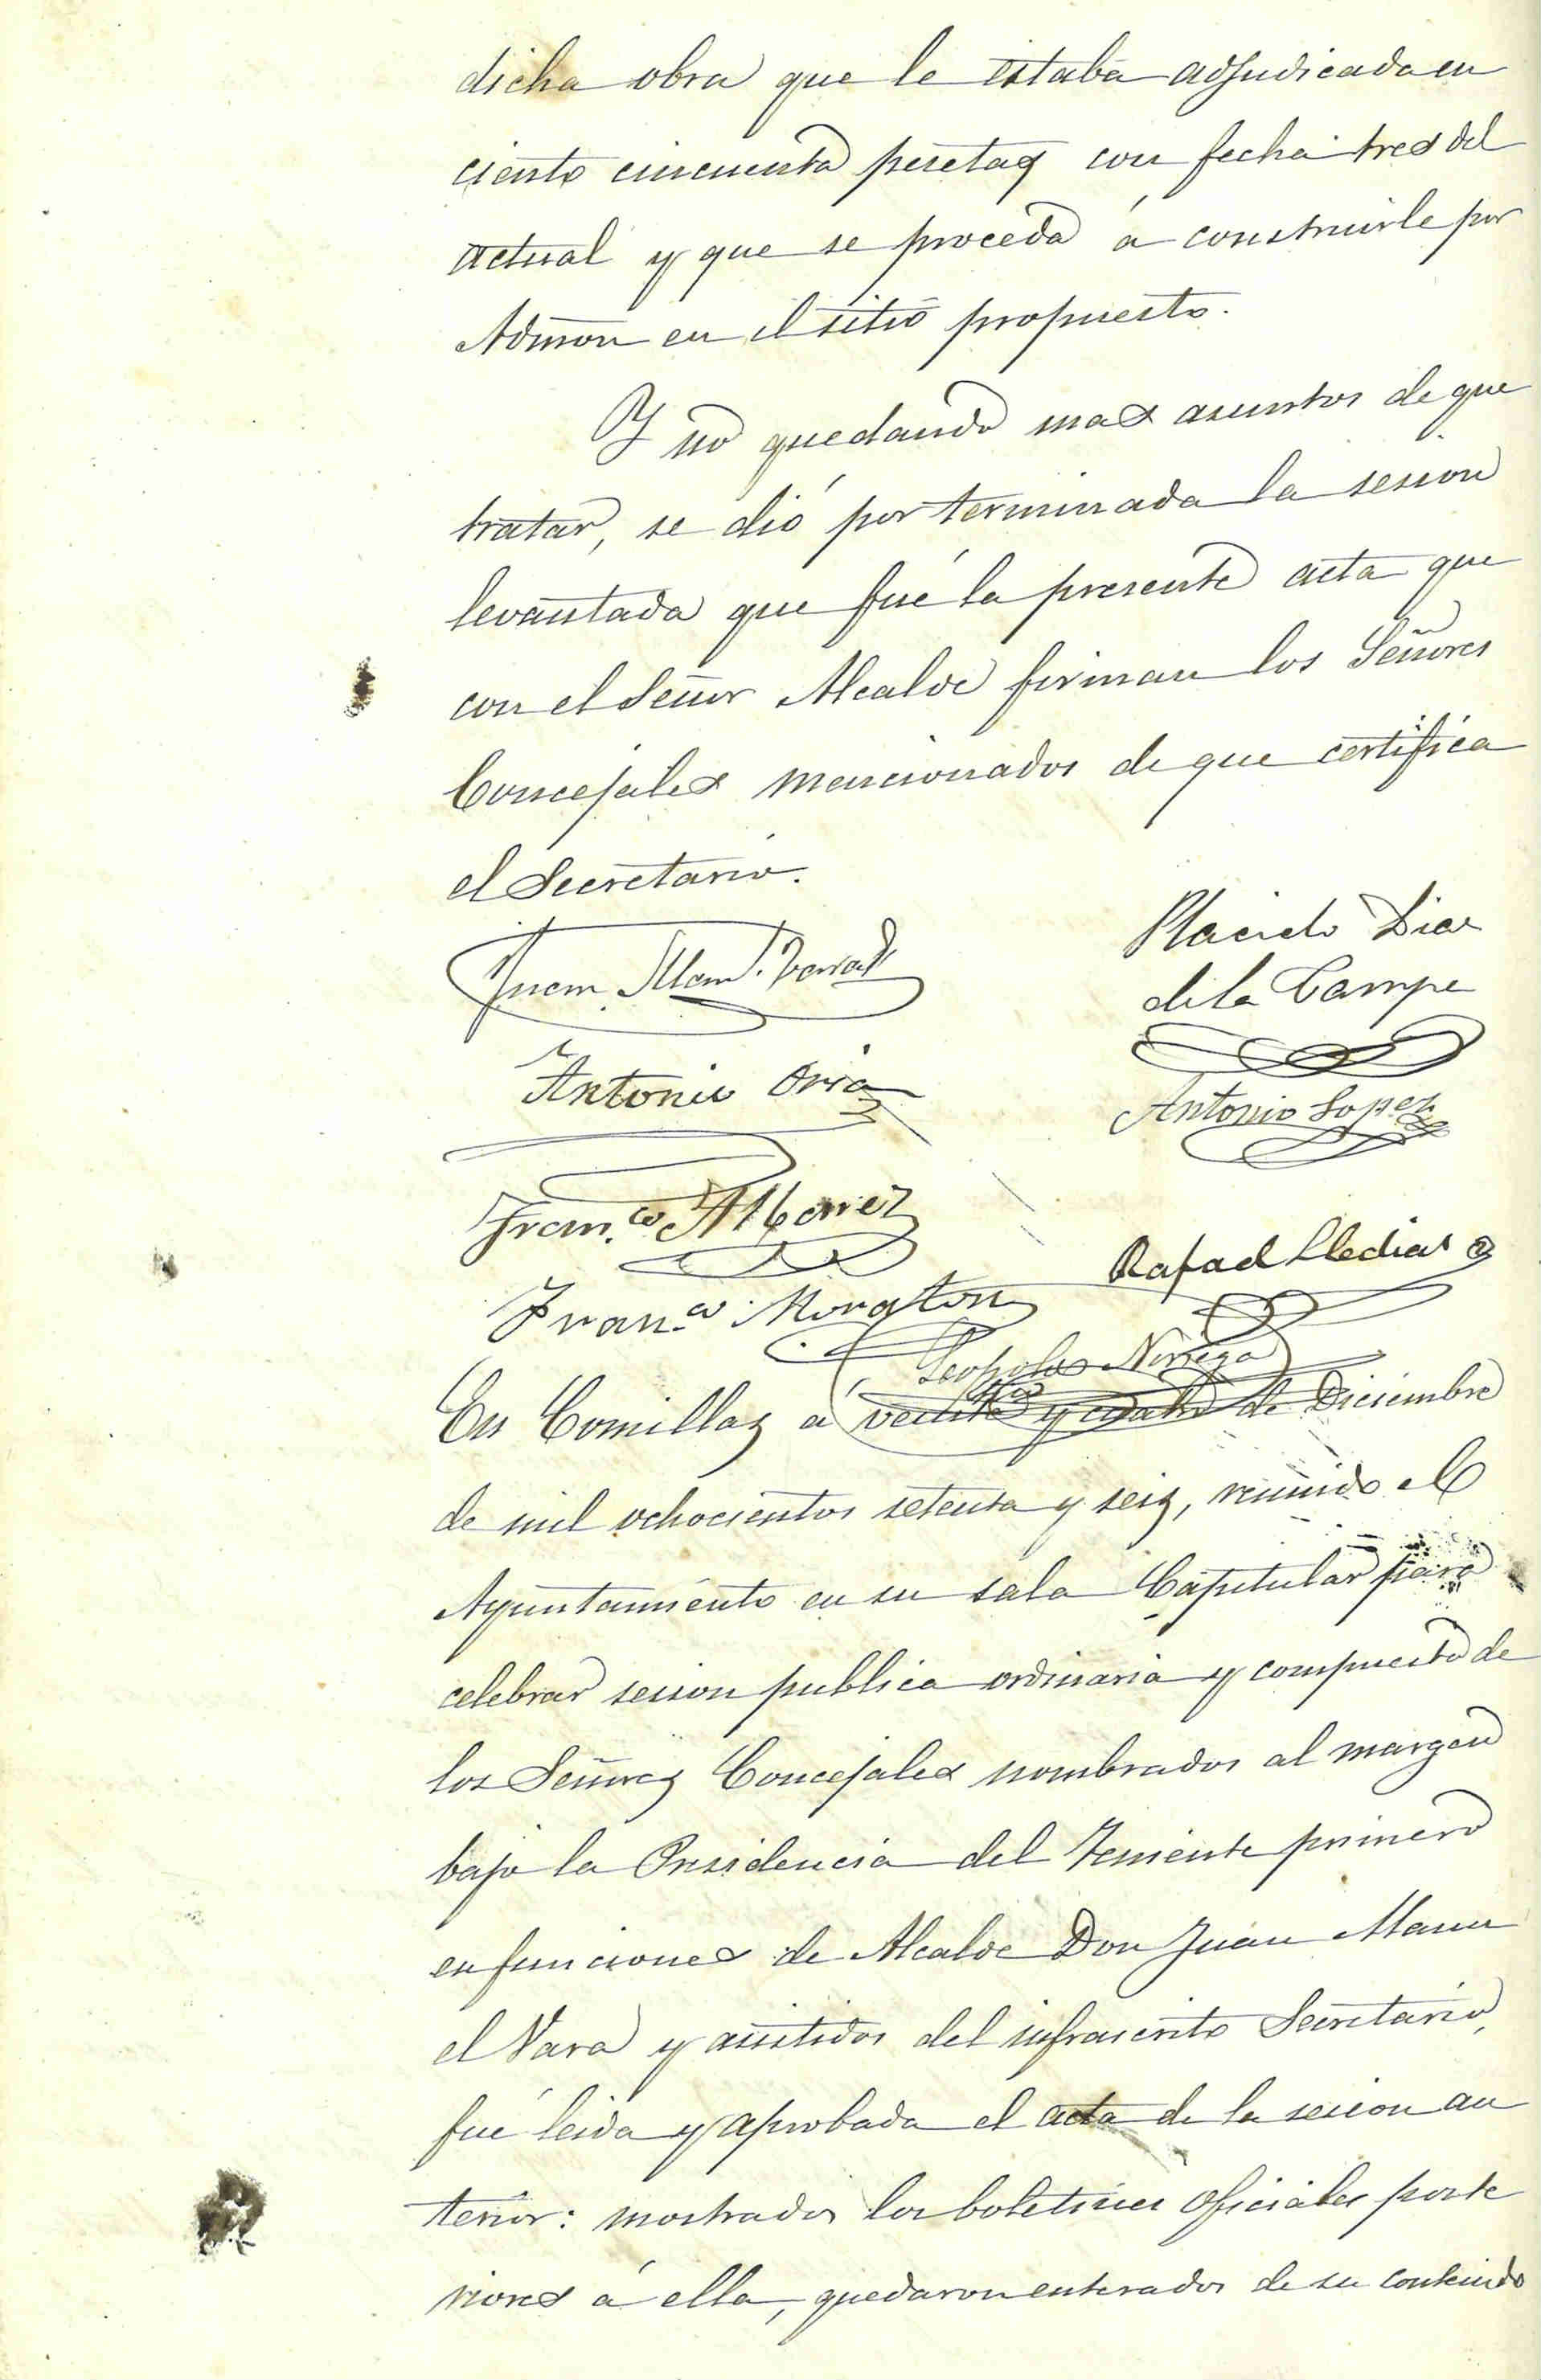 dicha obra que le estaba adjudicada en
ciento cincuenta pesetas con fecha tres del
actual y que se proceda á construirle por
Admon en el sitio propuesto.
Y no quedando mas asuntos de que
tratar, se dió por terminada la sesion
levantada que fué la presente acta que
con el Señor Alcalde firman los Señores
Concejales mencionados de que certifica
el Secretario.
Placido Diaz
de la Campa
Juan Man.
Antonio Oria
Antonio Lopez
Fran.co
Rafael Lledias
Fran.co Moraton
Leopoldo Noriega
En Comillas á veinte y cuatro de Diciembre
de mil ochocientos setenta y seis, reunido el
Ayuntamiento en su sala Capitular para
celebrar sesion publica ordinaria y compuesto de
los Señores Concejales nombrados al margen
bajo la Presidencia del Teniente primero
en funciones de Alcalde Don Juan Manu
el Vara y asistidos del infrascrito Secretario,
fué leida y aprobada el acta de la sesion an
terior: mostrados los boletines oficiales poste
riores á ella, quedaron enterados de su contenido